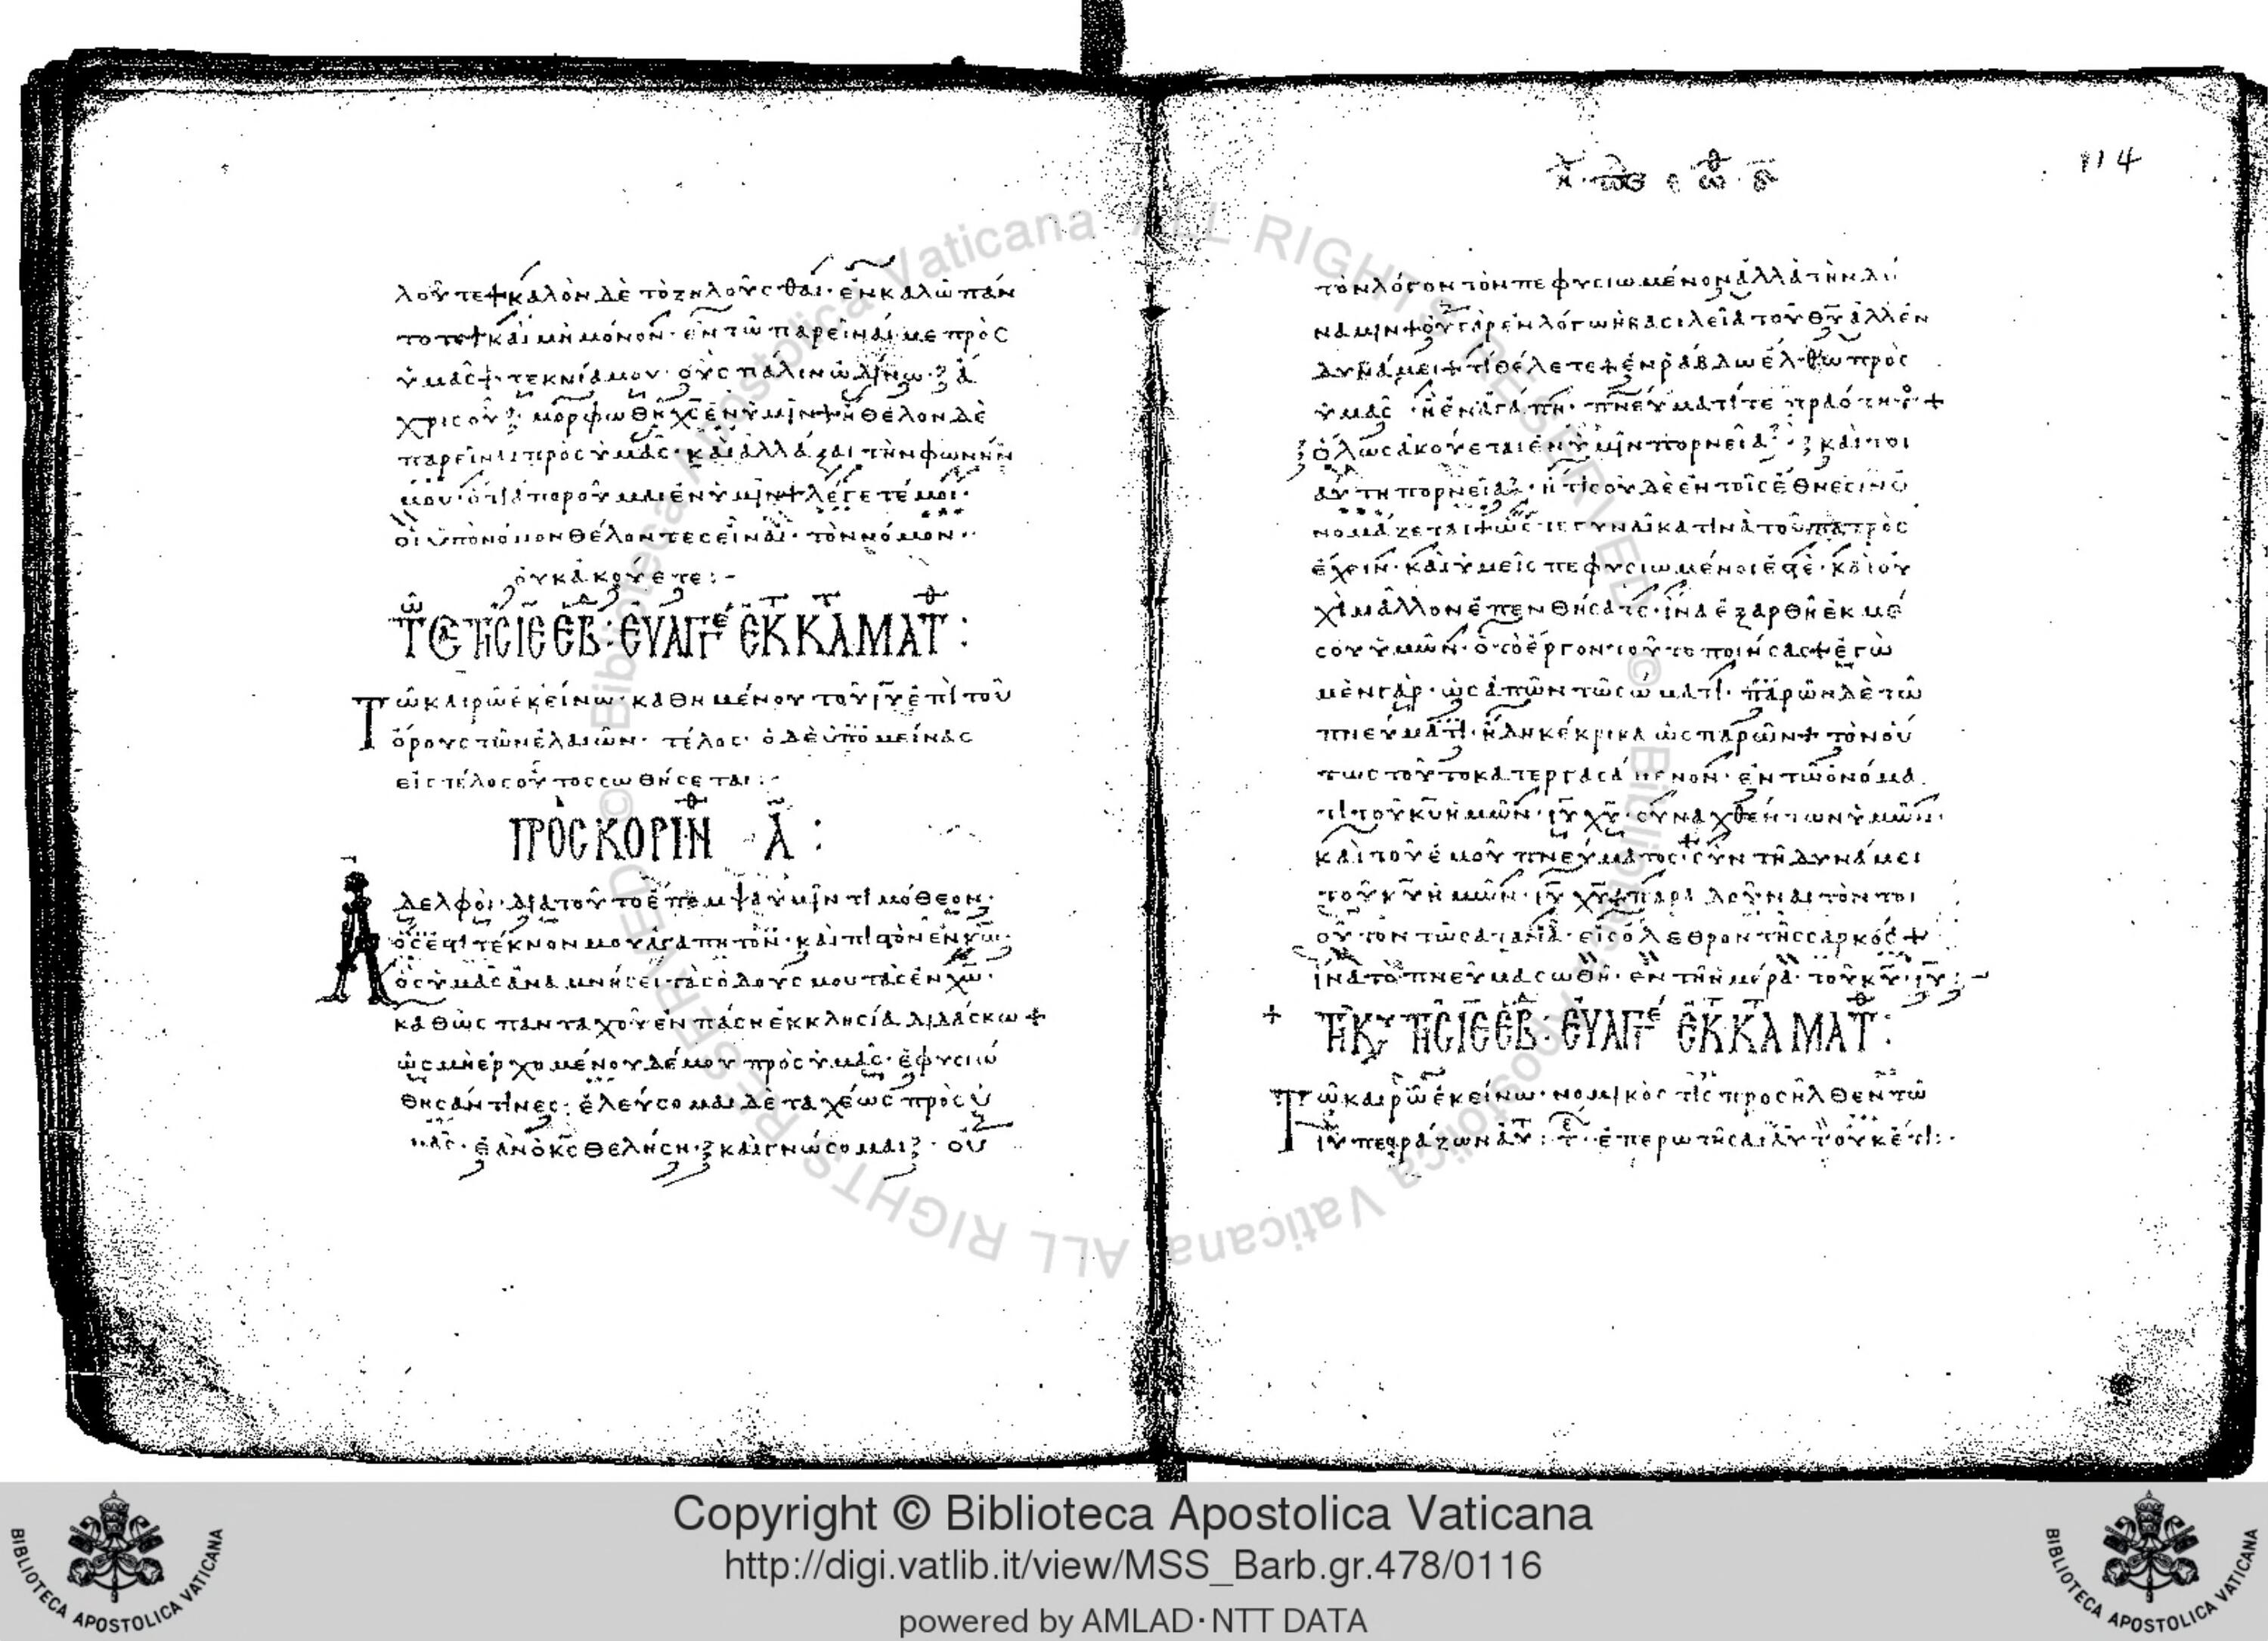 λοῦτε + καλὸν δὲ τὸ ζηλοῦσθαι· ἐν καλῶ πάν
τοτε + καὶ μὴ μόνον· ἐν τῶ παρεῖναί με πρὸς
ὑμᾶς + τεκνία μου· οὓς πάλιν ὠδίνω· ἄ
χρις οὗ μορφωθῆ χ̅ς̅ ἐν ὑμῖν + ἤθελον δὲ
παρεῖναι πρὸς ὑμᾶς· καὶ ἀλλάξαι τὴν φωνήν
μου· ὅτι ἀποροῦμαι ἐν ὑμῖν + λέγετέ μοι·
οἱ ὑπὸ νόμον θέλοντες εἶναι· τὸν νόμον
οὐκ ἀκούετε :-
ΤΗΣ ΙΕ ΕΒ : ΕΥΑΓΓΕ ΕΚ Κ ΜΑΤ :
Τῶ καιρῶ ἐκείνω· καθημένου τοῦ ι̅υ̅ ἐπὶ τοῦ
ὄρους τῶν ἐλαιῶν· τέλος· ὁ δὲ ὑπομείνας
εἰς τέλος οὗτος σωθήσεται :-
ΠΡΟΣ ΚΟΡΙΝ Α :
Ἀδελφοὶ· διὰ τοῦτο ἔπεμψα ὑμῖν τιμόθεον·
ὅς ἐστὶ τέκνον μου ἀγαπητὸν· καὶ πιστὸν ἐν κ̅ω̅·
ὃς ὑμᾶς ἀναμνήσει τὰς ὁδούς μου τὰς ἐν χ̅ω̅·
καθὼς πανταχοῦ ἐν πάση ἐκκλησία διδάσκω +
ὡς μὴ ἐρχομένου δέ μου πρὸς ὑμᾶς· ἐφυσιώ
θησάν τινες· ἐλεύσομαι δὲ ταχέως πρὸς ὑ
μᾶς· ἐὰν ὁ κ̅ς̅ θελήση· καὶ γνώσομαι· οὐ
114
τὸν λόγον τὸν πεφυσιωμένον ἀλλὰ τὴν δύ
ναμιν + οὐ γὰρ ἐν λόγω ἡ βασιλεία τοῦ θ̅υ̅ ἀλλ' ἐν
δυνάμει + τί θέλετε + ἐν ράβδω ἔλθω πρὸς
ὑμᾶς· ἢ ἐν ἀγάπη· πνεύματί τε πραότητος +
ὅλως ἀκούεται ἐν ὑμῖν πορνεία· καὶ τοι
αύτη πορνεία· ἥτις οὐδὲ ἐν τοῖς ἔθνεσιν ὀ
νομάζεται + ὥστε γυναῖκα τινὰ τοῦ πατρὸς
ἔχειν· καὶ ὑμεῖς πεφυσιωμένοι ἐστὲ· καὶ οὐ
χὶ μᾶλλον ἐπενθήσατε· ἵνα ἐξαρθῆ ἐκ μέ
σου ὑμῶν· ὁ τὸ ἔργον τοῦτο ποιήσας + ἐγὼ
μὲν γὰρ· ὡς ἀπὼν τῶ σώματι· παρὼν δὲ τῶ
πνεύματι· ἤδη κέκρικα ὡς παρὼν + τὸν οὕ
τως τοῦτο κατεργασάμενον· ἐν τῶ ὀνόμα
τι τοῦ κ̅υ̅ ἡμῶν· ι̅υ̅ χ̅υ̅· συναχθέντων ὑμῶν·
καὶ τοῦ ἐμοῦ πνεύματος· σὺν τῆ δυνάμει
τοῦ κ̅υ̅ ἡμῶν· ι̅υ̅ χ̅υ̅ + παραδοῦναι τὸν τοι
οῦτον τῶ σατανᾶ· εἰς ὄλεθρον τῆς σαρκός +
ἵνα τὸ πνεῦμα σωθῆ· ἐν τῆ ἡμέρα· τοῦ κ̅υ̅ ι̅υ̅ :-
+ ΤΗ ΚΥ ΤΗΣ ΙΕ ΕΒ : ΕΥΑΓΓΕ ΕΚ Κ ΜΑΤ :
Τῶ καιρῶ ἐκείνω· νομικὸς τὶς προσῆλθεν τῶ
ι̅υ̅ πειράζων αὐτ : τε· ἐπερωτῆσαι αὐτὸν οὐκέτι :-
Copyright © Biblioteca Apostolica Vaticana
http://digi.vatlib.it/view/MSS_Barb.gr.478/0116
powered by AMLAD·NTT DATA